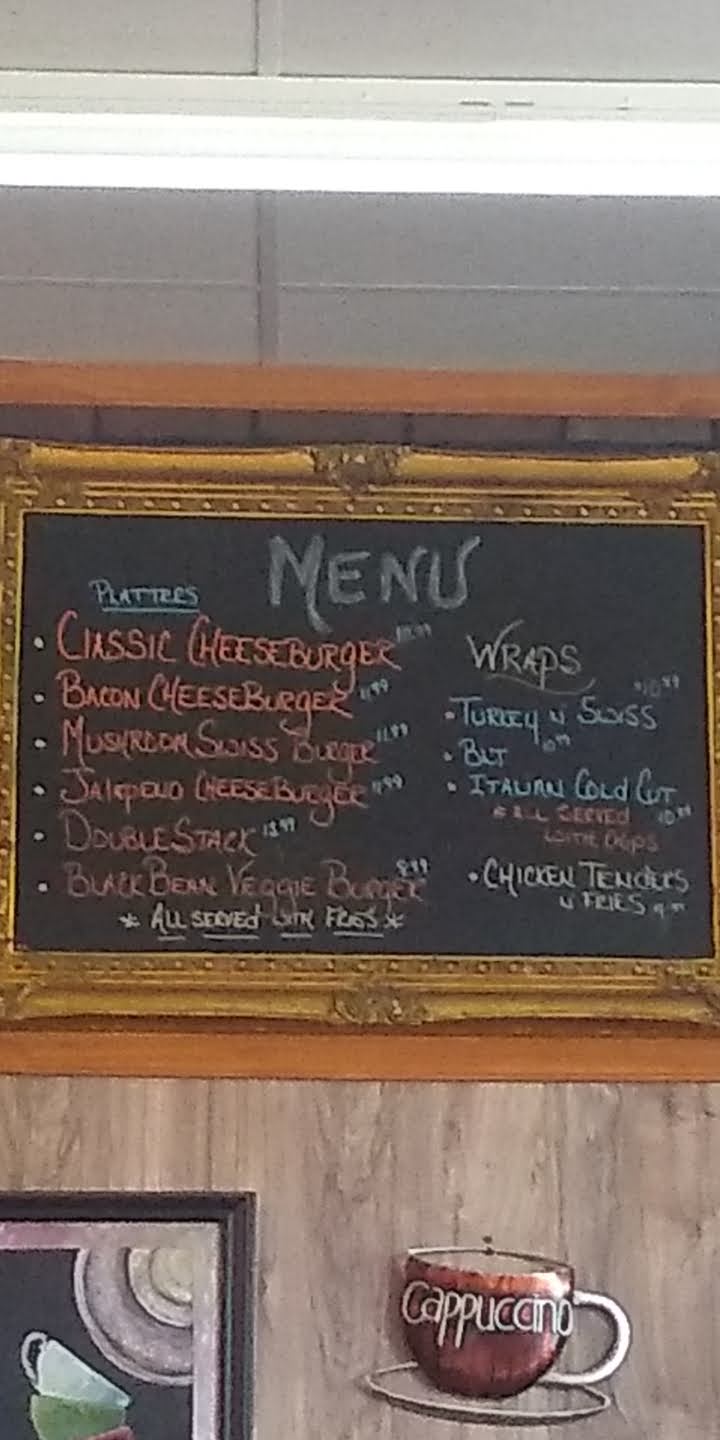 MENU
PLATTERS
• CLASSIC CHEESEBURGER
• BACON CHEESEBURGER 11.99
• MUSHROOM SWISS BURGER 11.99
• JALAPENO CHEESEBURGER 11.99
• DOUBLESTACK 13.99
• BLACK BEAN VEGGIE BURGER 8.99
* ALL SERVED WITH FRIES *
WRAPS
• TURKEY N SWISS $10.99
• BLT 10.99
• ITALIAN COLD CUT 10.99
* ALL SERVED
WITH CHIPS
• CHICKEN TENDERS
N FRIES
Cappuccino